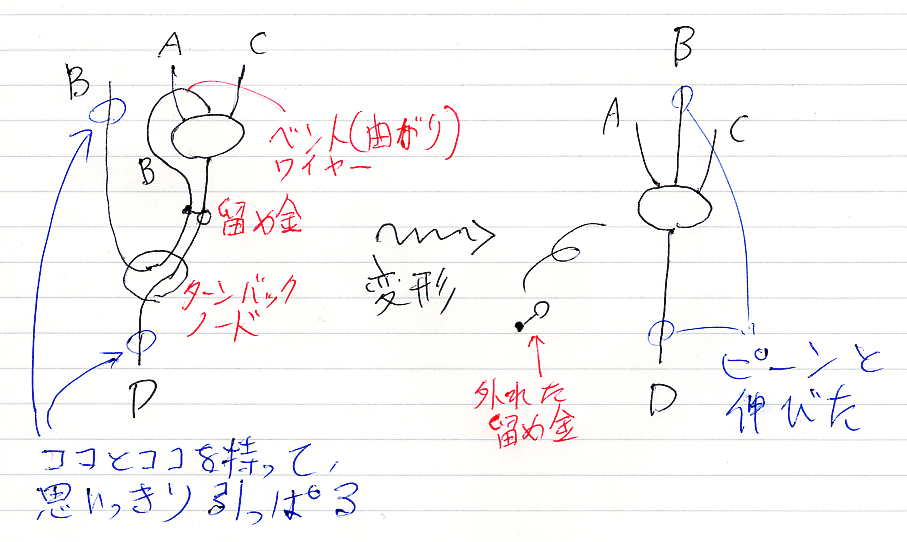 A C
B
ベント(曲がり)
ワイヤー
B
留め金
ターンバック
ノード
D
ココとココを持って、
思いっきり引っぱる
変形
B
A
C
D
外れた
留め金
ピーンと
伸びた